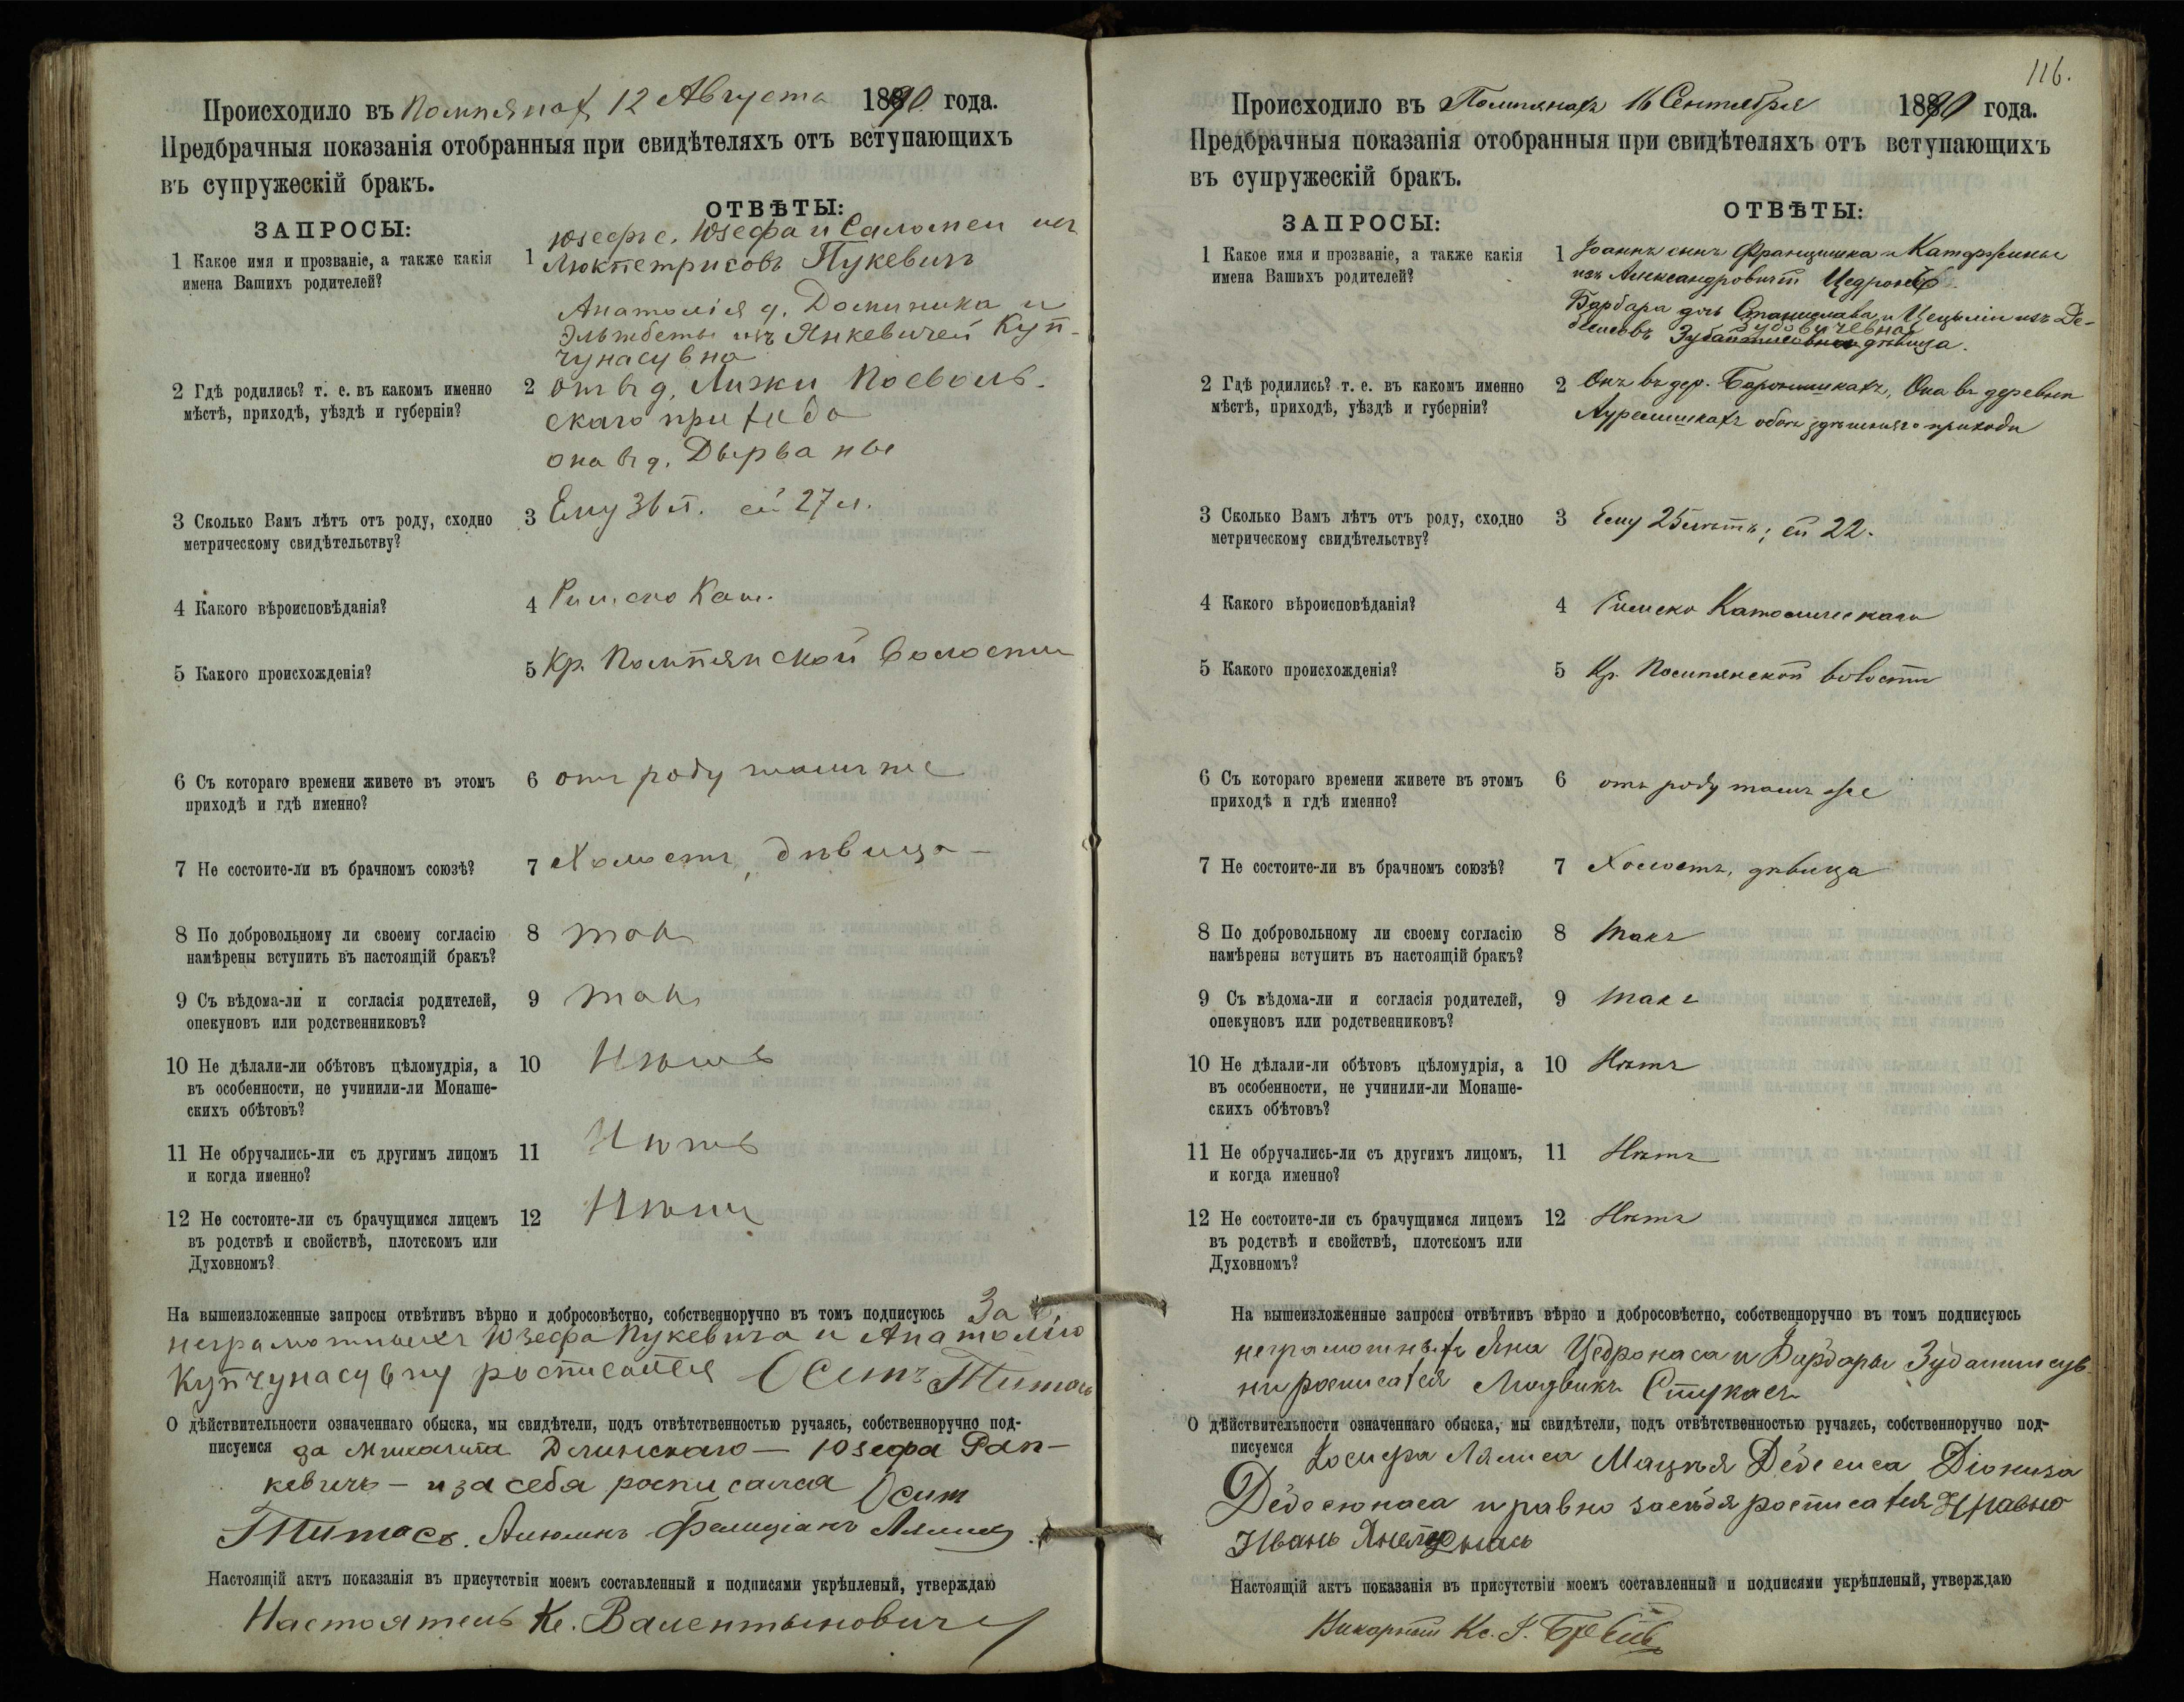 Происходило въ Помпянах 12 Августа 1890 года.
Предбрачныя показанія отобранныя при свидѣтеляхъ отъ вступающихъ
въ супружескій бракъ.
ЗАПРОСЫ:
ОТВѢТЫ:
1 Какое имя и прозваніе, а также какія
имена Вашихъ родителей?
1 Юзефъ с. Юзефа и Саломеи изъ
Люкпетрисовъ Пукевичъ
Анатолія д. Доминика и
Эльжбеты изъ Янкевичей Куп-
чунасувна
2 Гдѣ родились? т. е. въ какомъ именно
мѣстѣ, приходѣ, уѣздѣ и губерніи?
2 онъ в д. Поеволь-
скаго прихода
она в д. Дырваны
3 Сколько Вамъ лѣтъ отъ роду, сходно
метрическому свидѣтельству?
3 Ему 36 л. ей 27 л.
4 Какого вѣроисповѣданія?
4 Римско Кат.
5 Какого происхожденія?
5 Кр. Помпянской волости
6 Съ котораго времени живете въ этомъ
приходѣ и гдѣ именно?
6 отъ роду тамъ же
7 Не состоите-ли въ брачномъ союзѣ?
7 Холостъ, дѣвица
8 По добровольному ли своему согласію
намѣрены вступить въ настоящій бракъ?
8 такъ
9 Съ вѣдома-ли и согласія родителей,
опекуновъ или родственниковъ?
9 такъ
10 Не дѣлали-ли обѣтовъ цѣломудрія, а
въ особенности, не учинили-ли Монаше-
скихъ обѣтовъ?
10 Нѣтъ
11 Не обручались-ли съ другимъ лицомъ
и когда именно?
11 Нѣтъ
12 Не состоите-ли съ брачущимся лицемъ
въ родствѣ и свойствѣ, плотскомъ или
Духовномъ?
12 Нѣтъ
На вышеизложенные запросы отвѣтивъ вѣрно и добросовѣстно, собственноручно въ томъ подписуюсь За
неграмотныхъ Юзефа Пукевича и Анатолію
Купчунасувну росписался Осипъ Титось
О дѣйствительности означеннаго обыска, мы свидѣтели, подъ отвѣтственностью ручаясь, собственноручно под-
писуемся за Длинскаго — Юзефа Ран-
кевичъ — и за себя росписался Осип
Титось. Фелиціанъ
Настоящій актъ показанія въ присутствіи моемъ составленный и подписями укрѣпленый, утверждаю
Настоятель Кс. Валентыновичъ
116.
Происходило въ Помпянахъ 16 Сентября 1890 года.
Предбрачныя показанія отобранныя при свидѣтеляхъ отъ вступающихъ
въ супружескій бракъ.
ЗАПРОСЫ:
ОТВѢТЫ:
1 Какое имя и прозваніе, а также какія
имена Вашихъ родителей?
1 Іоаннъ сынъ Францишка и Катаржины
изъ Александровичей
Барбара дочь Станислава и Цецыліи изъ Де-
десисовъ дѣвица.
2 Гдѣ родились? т. е. въ какомъ именно
мѣстѣ, приходѣ, уѣздѣ и губерніи?
2 Онъ въ дер. Баронишкахъ, Она въ деревнѣ
Аурелишкахъ обои здѣшняго прихода
3 Сколько Вамъ лѣтъ отъ роду, сходно
метрическому свидѣтельству?
3 Ему 25 лѣтъ; ей 22.
4 Какого вѣроисповѣданія?
4 Римско Католическаго
5 Какого происхожденія?
5 Кр. Помпянской волости
6 Съ котораго времени живете въ этомъ
приходѣ и гдѣ именно?
6 отъ роду тамъ же
7 Не состоите-ли въ брачномъ союзѣ?
7 Холостъ, дѣвица
8 По добровольному ли своему согласію
намѣрены вступить въ настоящій бракъ?
8 Такъ
9 Съ вѣдома-ли и согласія родителей,
опекуновъ или родственниковъ?
9 Такъ
10 Не дѣлали-ли обѣтовъ цѣломудрія, а
въ особенности, не учинили-ли Монаше-
скихъ обѣтовъ?
10 Нѣтъ
11 Не обручались-ли съ другимъ лицомъ,
и когда именно?
11 Нѣтъ
12 Не состоите-ли съ брачущимся лицемъ
въ родствѣ и свойствѣ, плотскомъ или
Духовномъ?
12 Нѣтъ
На вышеизложенные запросы отвѣтивъ вѣрно и добросовѣстно, собственноручно въ томъ подписуюсь
неграмотныхъ Яна Цедронаса и Барбары
росписался Людвикъ Стукасъ
О дѣйствительности означеннаго обыска, мы свидѣтели, подъ отвѣтственностью ручаясь, собственноручно под-
писуемся Іосифа Лялиса Мацѣя Дедесиса Діониза
Дедесюнаса и равно за себя росписался И равно
Ивань
Настоящій актъ показанія въ присутствіи моемъ составленный и подписями укрѣпленый, утверждаю
Викарный Кс.